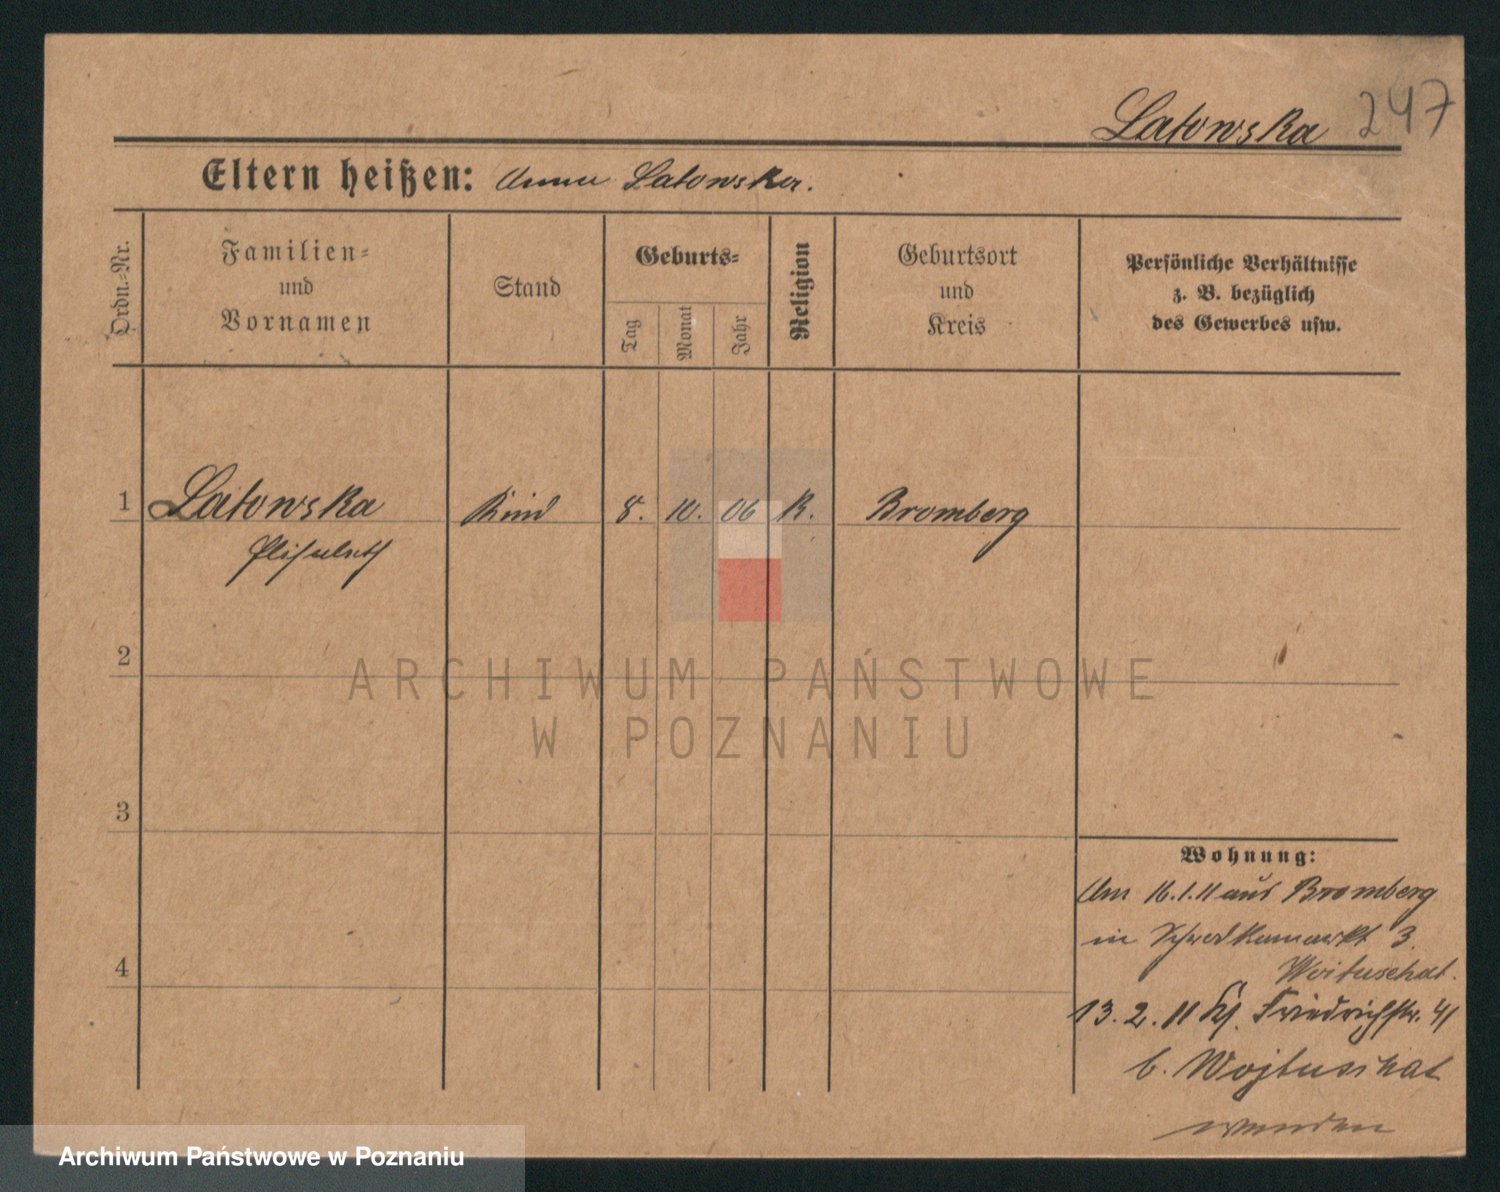 Latowska 247
Eltern heißen: Anna Latowska.
Ordn.-Nr.
Familien-
und
Vornamen
Stand
Geburts-
Tag
Monat
Jahr
Religion
Geburtsort
und
Kreis
Persönliche Verhältnisse
z. B. bezüglich
des Gewerbes usw.
1 Latowska Kind 8. 10. 06 K. Bromberg
Elisabeth
2
ARCHIWUM PAŃSTWOWE
W POZNANIU
3
4
Wohnung:
Am 16.1.11 aus Bromberg
in 3.
Woituschat.
13. 2. 11 Friedrichstr. 41
b. Wojtuschat
wenden
Archiwum Państwowe w Poznaniu